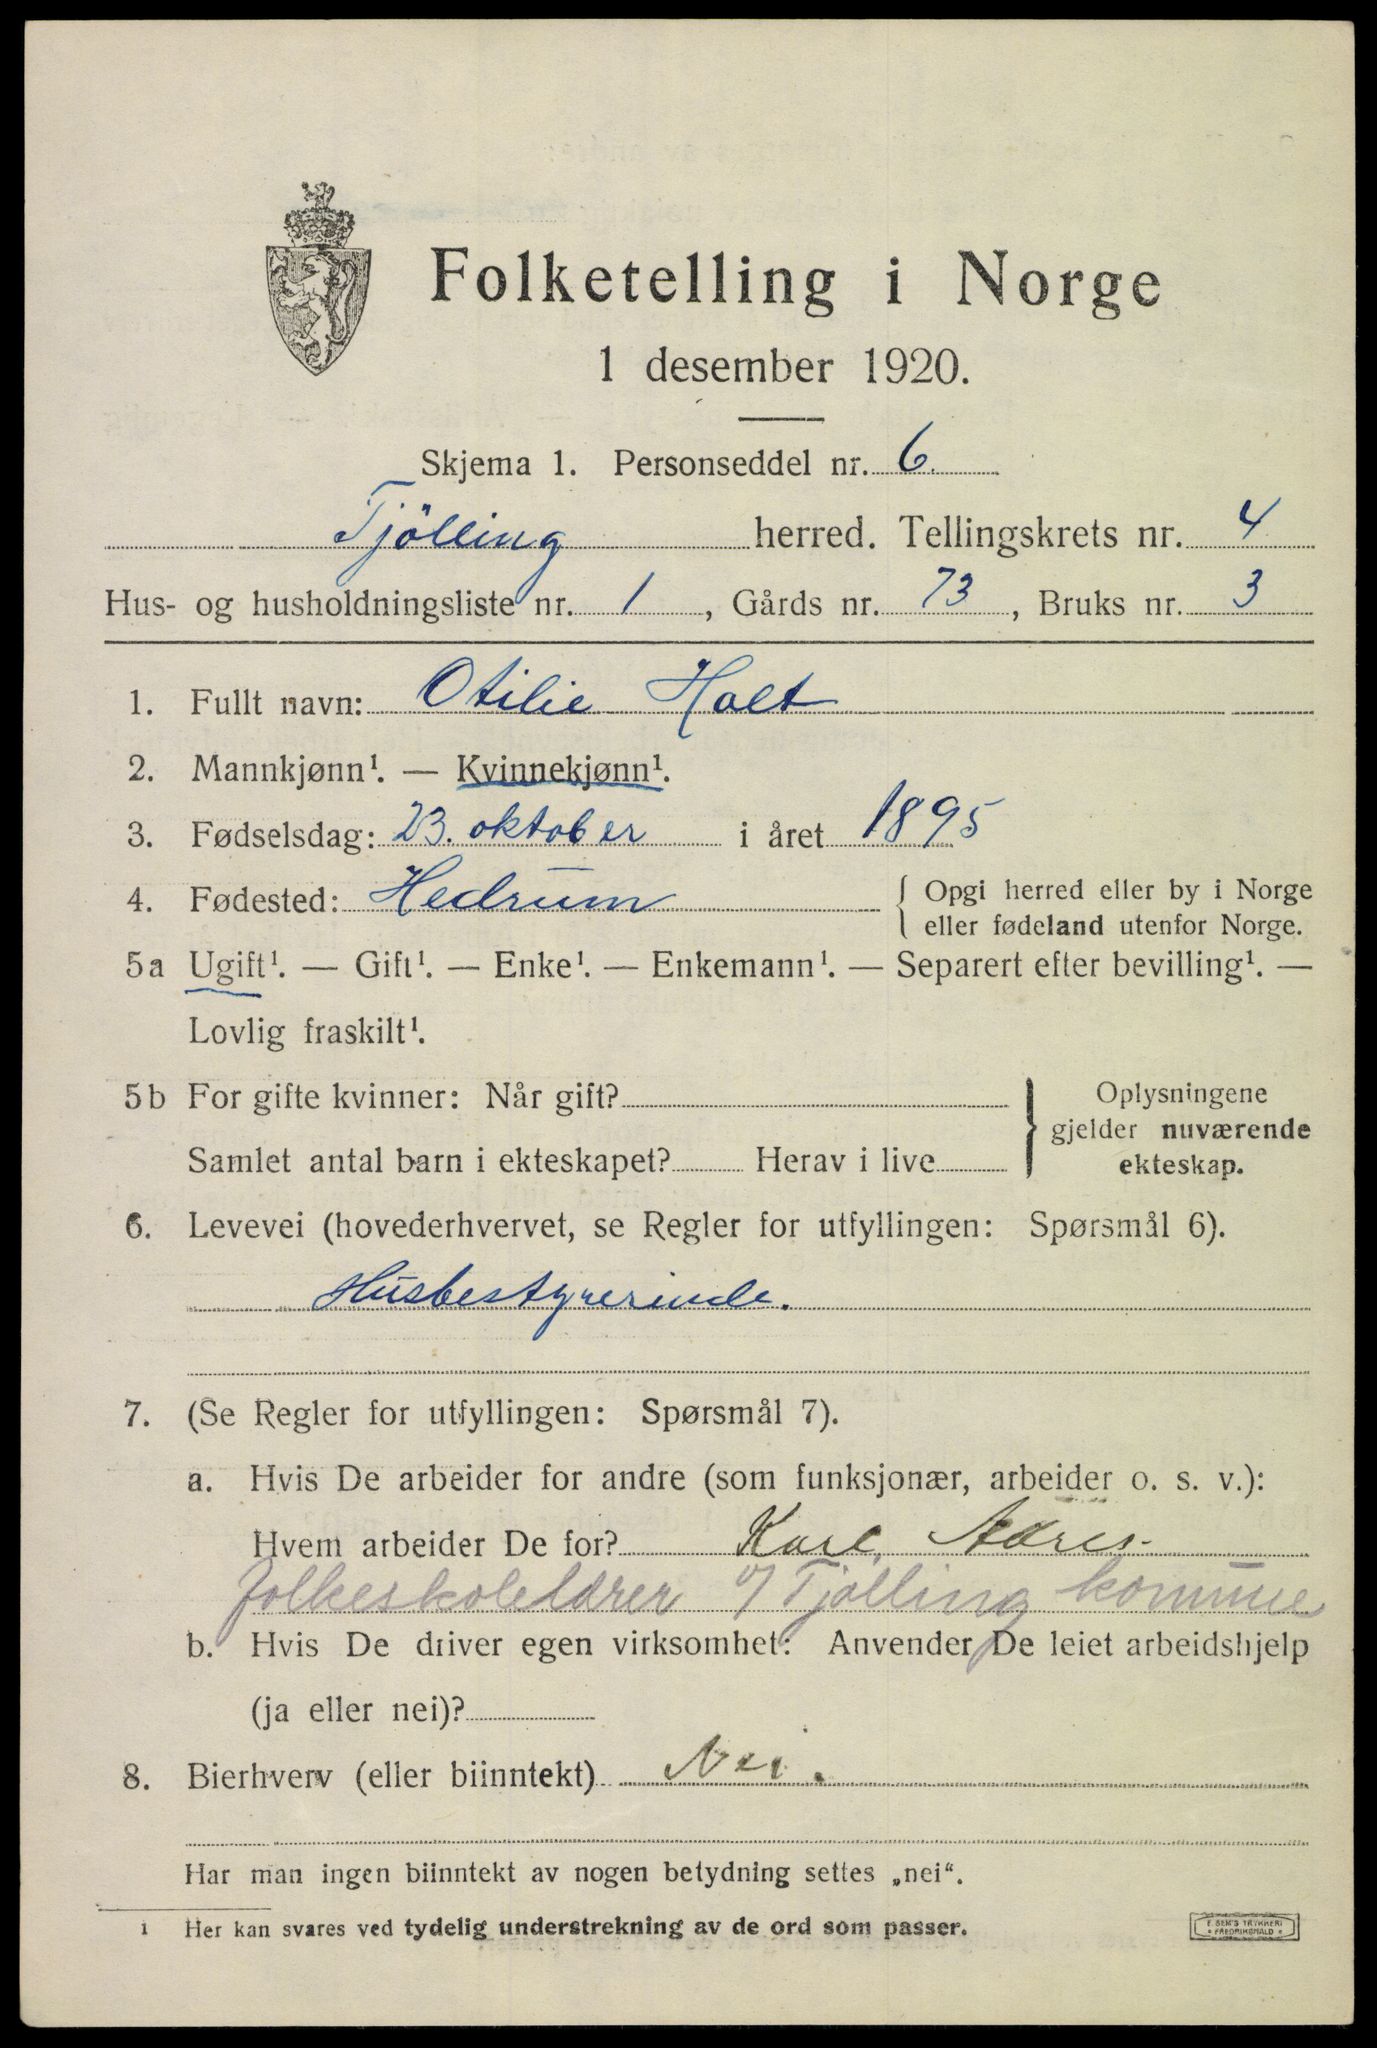 Folketelling i Norge
1 desember 1920.
Skjema 1. Personseddel nr. 6.
Tjölling herred. Tellingskrets nr. 4
Hus- og husholdningsliste nr. 1, Gårds nr. 73, Bruks nr. 3
1. Fullt navn: Otilie Holt
2. Mannkjønn¹. — Kvinnekjønn¹.
3. Fødselsdag: 23. oktober i året 1895
4. Fødested: Hedrum { Opgi herred eller by i Norge
eller fødeland utenfor Norge.
5a Ugift¹. — Gift¹. — Enke¹. — Enkemann¹. — Separert efter bevilling¹. —
Lovlig fraskilt¹.
5b For gifte kvinner: Når gift?
Samlet antal barn i ekteskapet? Herav i live
} Oplysningene
gjelder nuværende
ekteskap.
6. Levevei (hovederhvervet, se Regler for utfyllingen: Spørsmål 6).
Husbestyrerinde.
7. (Se Regler for utfyllingen: Spørsmål 7).
a. Hvis De arbeider for andre (som funksjonær, arbeider o. s. v.):
Hvem arbeider De for? Karl
folkeskolelærer v/ Tjølling kommune
b. Hvis De driver egen virksomhet: Anvender De leiet arbeidshjelp
(ja eller nei)?
8. Bierhverv (eller biinntekt) Nei.
Har man ingen biinntekt av nogen betydning settes „nei“.
1 Her kan svares ved tydelig understrekning av de ord som passer.
F. SEM'S TRYKKERI
FREDRIKSHALD